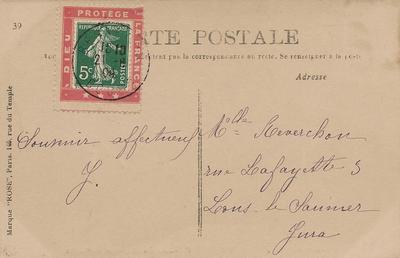 39
PROTÈGE
DIEU
LA FRANCE
RÉPUBLIQUE FRANÇAISE
5c
POSTES
CARTE POSTALE
pas la correspondance au recto. Se renseigner à la poste
Adresse
Souvenir affectueux
J.
Mlle Reverchon
rue Lafayette 3
Lons-le-Saunier
Jura
Marque "ROSE", Paris, rue du Temple